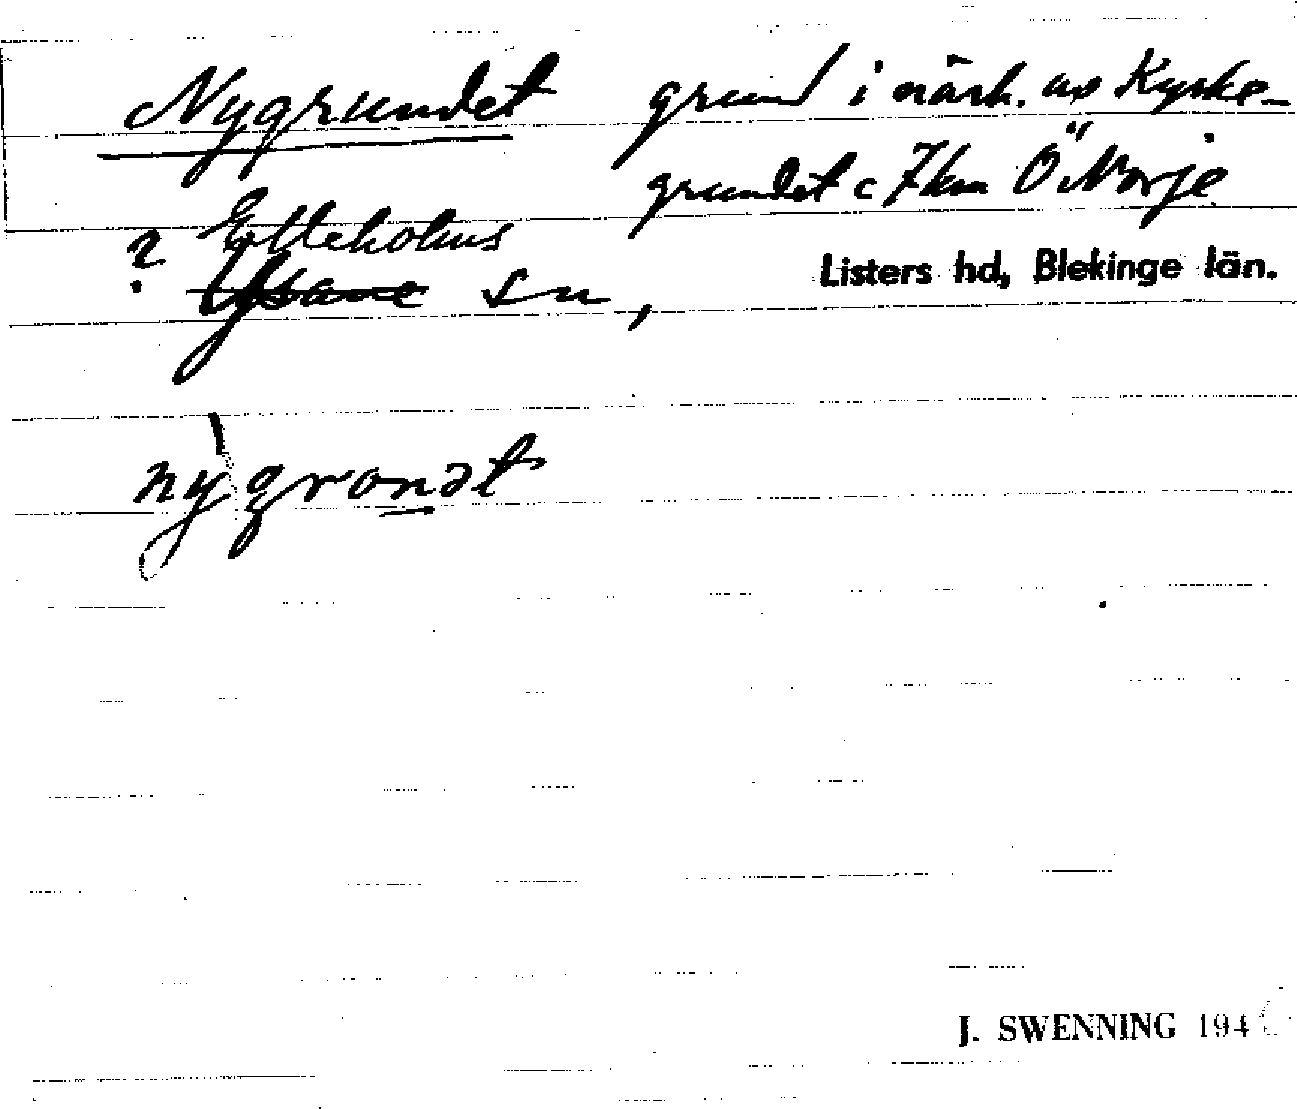 Nygrundet grund i närh. av Kyrke-
grundet c 7 km Ö. Norje
? Elleholms
Ysane sn, Listers hd, Blekinge län.
nygrondt
J. SWENNING 194